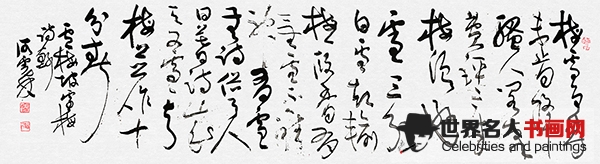 梅雪争春
未肯降
骚人阁笔
费评章
梅须逊
雪三分
白雪却输
梅一段香有
梅无雪不精
神有雪
无诗俗了人
日暮诗成
天又雪与
梅并作十
分春
世界名人书画网
Celebrities and paintings